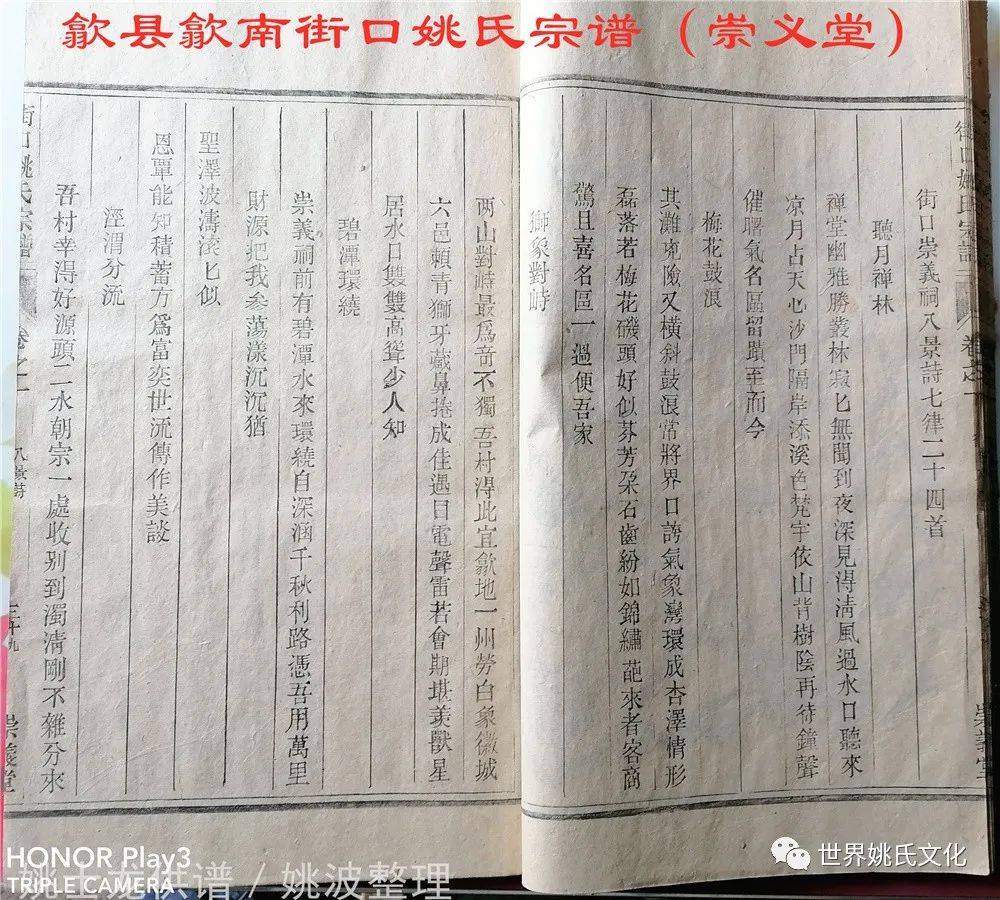 歙县歙南街口姚氏宗谱（崇义堂）
街口崇義祠八景詩七律二十四首
聽月禅林
禅堂幽雅勝叢林寂匕無聞到夜深見淂清風過水口聽來
凉月占天心沙門隔岸添溪色梵宇依山背樹陰再待鐘聲
催曙氣名區留蹟至而今
梅花鼓浪
其灘兇險又橫斜鼓浪常將界口誇氣象灣環成杏澤情形
磊落若梅花磯頭好似芬芳朶石齒紛如錦繡葩來者客商
驚且喜名區一過便吾家
獅象對峙
两山對峙最爲竒不獨吾村淂此宜歙地一州勞白象徽城
六邑賴青獅牙藏鼻捲成佳遇目電聲雷若會期堪羡獸星
居水口雙雙高聳少人知
碧潭環繞
崇義祠前有碧潭水來環繞自深涵千秋利路憑吾用萬里
財源把我参蕩漾沉沉猶
聖澤波濤滚匕似
恩覃能知積蓄方爲富奕世流傳作美談
涇渭分流
吾村幸得好源頭二水朝宗一處收别到濁清剛不雜分來
街口姚氏宗譜
卷之一
八景詩
三十九
崇義堂
HONOR Play3
TRIPLE CAMERA
供谱 / 姚波整理
世界姚氏文化